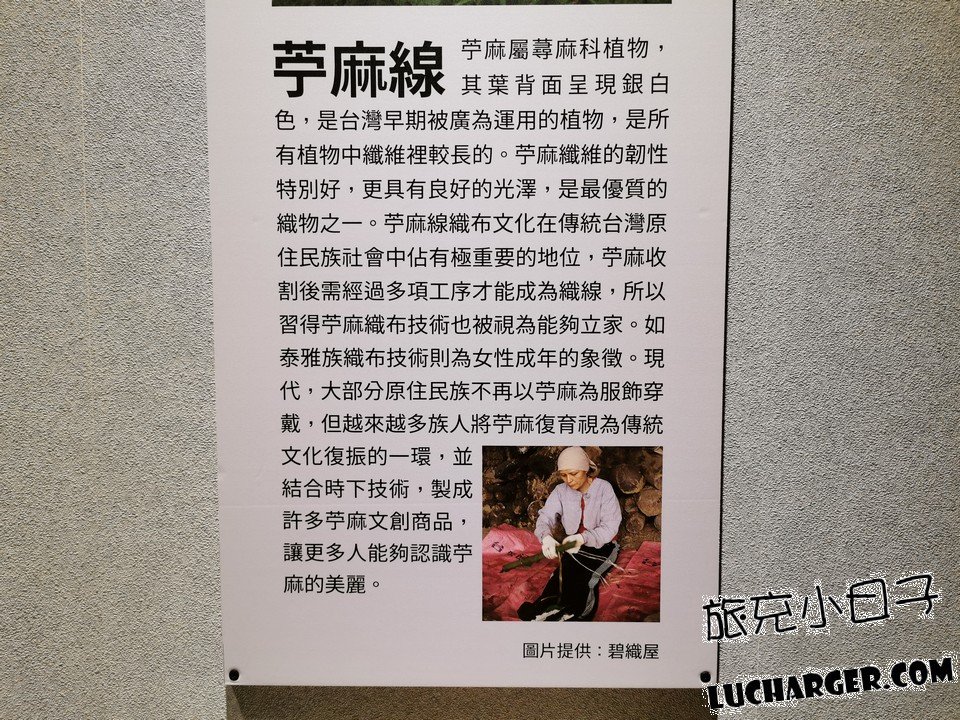 苧麻線
苧麻屬蕁麻科植物，
其葉背面呈現銀白
色，是台灣早期被廣為運用的植物，是所
有植物中纖維裡較長的。苧麻纖維的韌性
特別好，更具有良好的光澤，是最優質的
織物之一。苧麻線織布文化在傳統台灣原
住民族社會中佔有極重要的地位，苧麻收
割後需經過多項工序才能成為織線，所以
習得苧麻織布技術也被視為能夠立家。如
泰雅族織布技術則為女性成年的象徵。現
代，大部分原住民族不再以苧麻為服飾穿
戴，但越來越多族人將苧麻復育視為傳統
文化復振的一環，並
結合時下技術，製成
許多苧麻文創商品，
讓更多人能夠認識苧
麻的美麗。
圖片提供：碧織屋
旅充小日子
LUCHARGER.COM